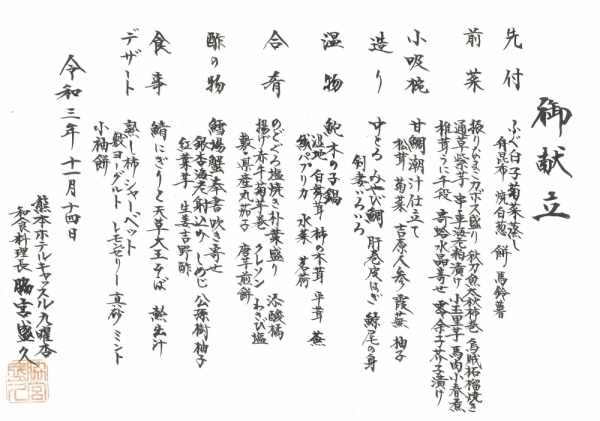 御献立
先付
ふぐ白子菊菜蒸し
角昆布 焼白葱 餅 馬鈴薯
前菜
振りいちご刀豆天盛り 秋刀魚大葉柿巻 烏賊柘榴焼き
通草蒸芋 串車海老粕漬け 小玉里芋 馬肉小春煮
椎茸うに千段 寄蛤水晶寄せ 零余子芥子漬け
小吸椀
甘鯛潮汁仕立て
松茸 菊菜 吉原人参 霞蕪 柚子
造り
中とろ みやび鯛 肝巻皮はぎ 鰤尾の身
剣妻いろいろ
温物
鮑木の子鍋
湿地 白舞茸 柿の木茸 平茸 蕪
織パプリカ 水菜 芽術
合肴
のどぐろ塩焼き朴葉盛り 添酸橘
揚げ赤牛菊芋巻 クレソン わさび塩
敷・県産丸茄子 唐芋煎餅
酢の物
鱈場蟹奉書吹き寄せ
銀杏海老射込み しめじ 公孫樹柚子
紅葉芋 生姜吉野酢
食事
鯖にぎりと天草大王そば 熱出汁
デザート
熟し柿シャーベット
敷ヨーグルト レモンゼリー 真砂ミント
小袖餅
令和三年 十一月十四日
熊本ホテルキャッスル九曜杏
和食料理長 脇宮盛久